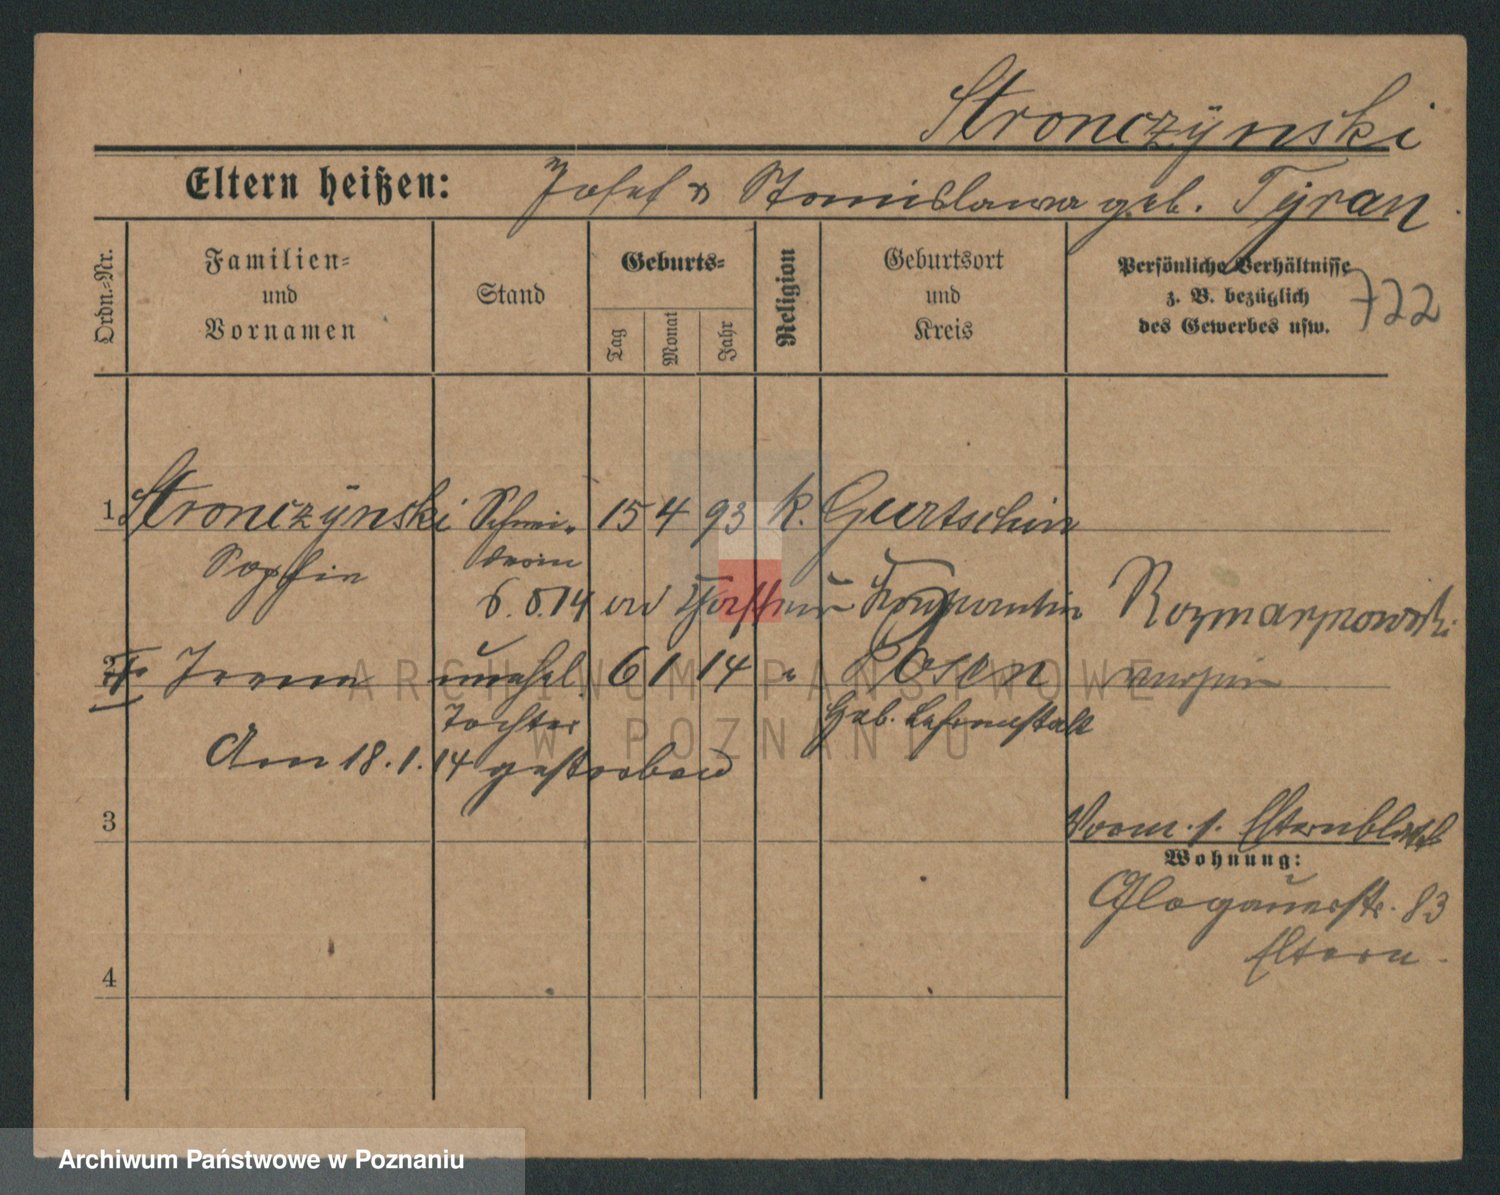 Stronczÿnski
Eltern heißen: Josef & Stanislawa geb. Tyran
Ordn.=Nr.
Familien=
und
Vornamen
Stand
Geburts=
Tag
Monat
Jahr
Religion
Geburtsort
und
Kreis
Persönliche Verhältnisse
z. B. bezüglich
des Gewerbes usw.
722
1 Stronczÿnski Schnei- 15 4 93 k. Gurtschin
Sophie derin
6.5.14 Konstantin Rozmarynowski
2 Irene unehel. 6 1 14 " Posen
Tochter Heb. Lehranstalt
Am 18.1.14 gestorben
3
Vorm. s. Elternblatt
Wohnung:
Glogauerstr. 83
Eltern.
4
ARCHIWUM PAŃSTWOWE
W POZNANIU
Archiwum Państwowe w Poznaniu